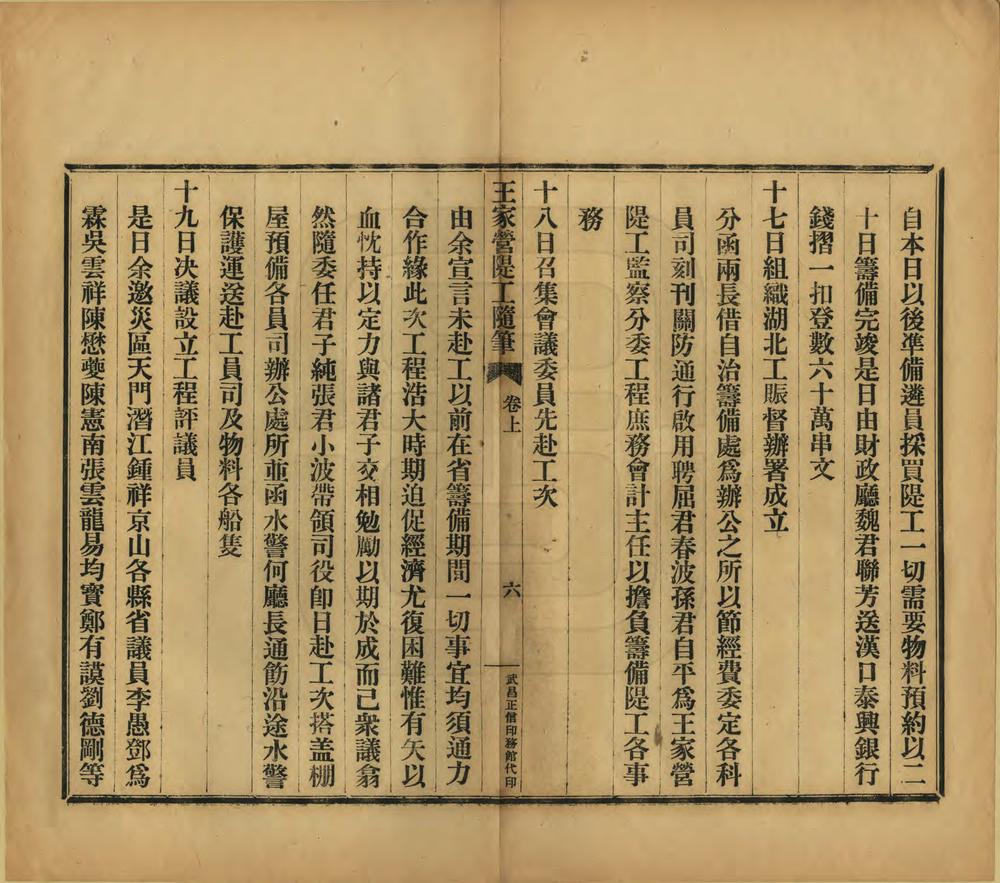 自本日以後準備遴員採買隄工一切需要物料預約以二
十日籌備完竣是日由財政廳魏君聯芳送漢口泰興銀行
錢摺一扣登數六十萬串文
十七日組織湖北工賑督辦署成立
分函兩長借自治籌備處爲辦公之所以節經費委定各科
員司刻刊關防通行啟用聘屈君春波孫君自平爲王家營
隄工監察分委工程庶務會計主任以擔負籌備隄工各事
務
十八日召集會議委員先赴工次
王家營隄工隨筆 卷上 六 武昌正信印務館代印
由余宣言未赴工以前在省籌備期間一切事宜均須通力
合作緣此次工程浩大時期迫促經濟尤復困難惟有矢以
血忱持以定力與諸君子交相勉勵以期於成而已衆議翕
然隨委任君子純張君小波帶領司役卽日赴工次搭盖棚
屋預備各員司辦公處所並函水警何廳長通飭沿途水警
保護運送赴工員司及物料各船隻
十九日决議設立工程評議員
是日余邀災區天門潛江鍾祥京山各縣省議員李愚鄧爲
霖吳雲祥陳懋夔陳憲南張雲龍易均實鄭有謨劉德剛等